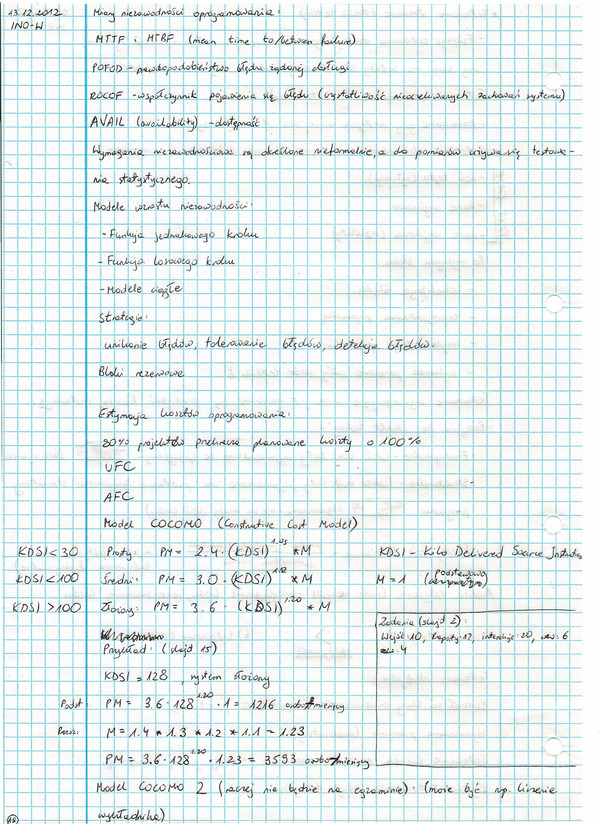 13.12.2012
INO-W
Miary niezawodności oprogramowania:
MTTF i MTBF (mean time to/between failure)
POFOD - prawdopodobieństwo błędu żądanej obsługi
ROCOF - współczynnik pojawienia się błędu (częstotliwość nieoczekiwanych zachowań systemu)
AVAIL (availability) - dostępność
Wymagania niezawodnościowe są określone nieformalnie, a do pomiarów używa się testowa-
nia statystycznego.
Modele wzrostu niezawodności:
- Funkcja jednakowego kroku
- Funkcja losowego kroku
- Modele ciągłe
Strategie:
unikanie błędów, tolerowanie błędów, detekcja błędów.
Bloki rezerwowe
Estymacja kosztów oprogramowania:
80% projektów przekracza planowane koszty o 100%
UFC
AFC
Model COCOMO (Constructive Cost Model)
KDSI < 30 Prosty: PM = 2.4 · (KDSI)^1.05 * M KDSI - Kilo Delivered Source Instructions
KDSI < 100 Średni: PM = 3.0 · (KDSI)^1.12 * M M = 1 (podstawowo
KDSI > 100 Złożony: PM = 3.6 · (KDSI)^1.20 * M
Zadania (slajd 2):
Wejść: 10, Raporty: 12, interakcje: 20, : 6
: 4
Przykład: (slajd 15)
KDSI = 128, system złożony
Podst: PM = 3.6 · 128^1.20 · 1 = 1216 osobomiesięcy
Rozsz: M = 1.4 * 1.3 * 1.2 * 1.1 = 1.23
PM = 3.6 · 128^1.20 · 1.23 = 3593 osobomiesięcy
Model COCOMO 2 (raczej nie będzie na egzaminie): (może być np. liczenie
wykładnika)